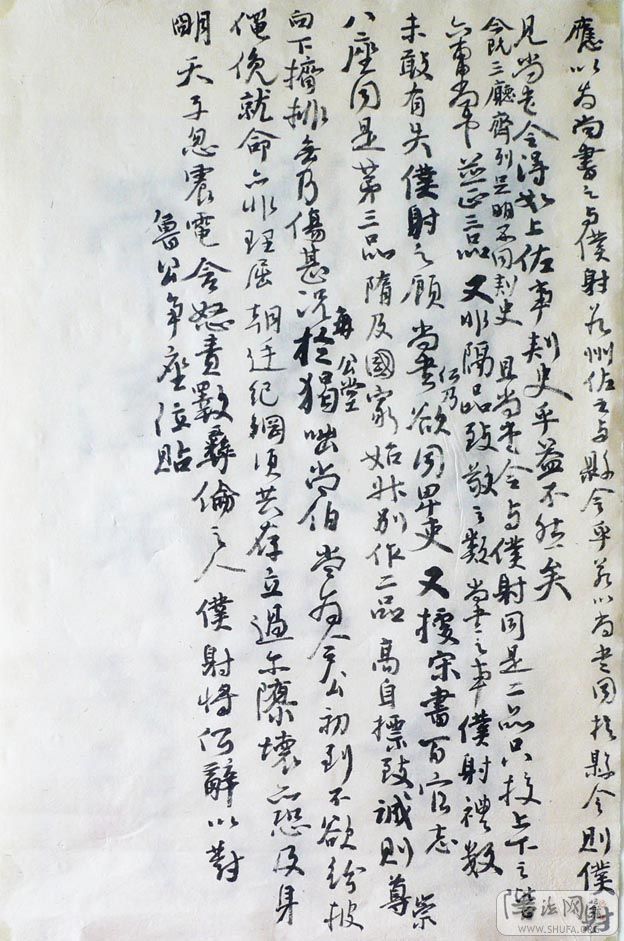 應以为尚書之与僕射若州佐之与縣令乎若以尚書同於縣令則僕射
見尚書令得如上佐事刾史乎益不然矣
今既三廳齊列足明不同刾史且尚書令与僕射同是二品只校上下之階
六曹尚書並正三品又非隔品致敬之類尚書之事僕射禮数
未敢有失僕射之顧尚書何乃欲同卑吏又據宋書百官志
八座同是第三品隋及國家始升別作二品高自標致誠則尊崇
向下擠排無乃傷甚況再公堂猲咄尚伯當为令公初到不欲紛披
僶俛就命亦非理屈朝廷紀綱須共存立過尔隳壞亦恐及身
明天子忽震電含怒責斁彝倫之人僕射將何辭以對
魯公争座位貼
書法网
WWW.SHUFA.ORG